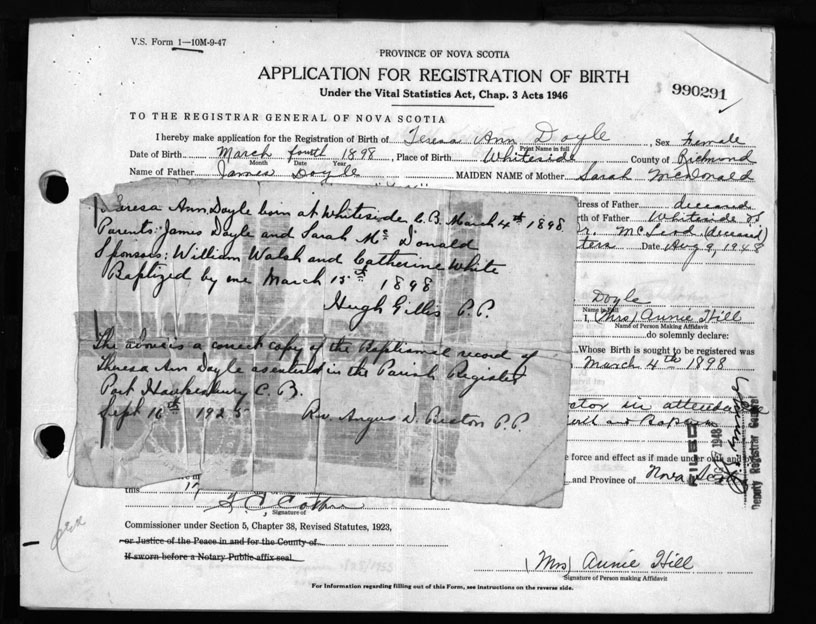 V.S. Form 1—10M-9-47
PROVINCE OF NOVA SCOTIA
APPLICATION FOR REGISTRATION OF BIRTH
Under the Vital Statistics Act, Chap. 3 Acts 1946
990291
TO THE REGISTRAR GENERAL OF NOVA SCOTIA
I hereby make application for the Registration of Birth of Teresa Ann Doyle, Sex Female
Print Name in full
Date of Birth March fourth 1898, Place of Birth Whiteside County of Richmond
Month Date Year
Name of Father James Doyle MAIDEN NAME of Mother Sarah McDonald
ddress of Father deceased
rth of Father Whiteside
Dr. McLeod (deceased)
Date Aug 9, 1948
Theresa Ann Doyle born at Whiteside C.B. March 4th 1898
Parents: James Doyle and Sarah Mc Donald
Sponsors: William Walsh and Catherine White
Baptized by me March 15th 1898
Hugh Gillis P.P.
The above is a correct copy of the Baptismal record of
Theresa Ann Doyle as entered in the Parish Register
Port Hawkesbury C.B.
Sept 16th 1925 Rev. Angus D. P.P.
Doyle
Name in Full
I, (Mrs) Annie Hill
Name of Person Making Affidavit
do solemnly declare:
Whose Birth is sought to be registered was
March 4th 1898
in attendance
and
force and effect as if made under oath and by
and Province of Nova Scotia
FILED
1948
Deputy Registrar General
this 17
Signature of
Commissioner under Section 5, Chapter 38, Revised Statutes, 1923,
or Justice of the Peace in and for the County of
If sworn before a Notary Public affix seal
(Mrs) Annie Hill
Signature of Person making Affidavit
For Information regarding filling out of this Form, see instructions on the reverse side.